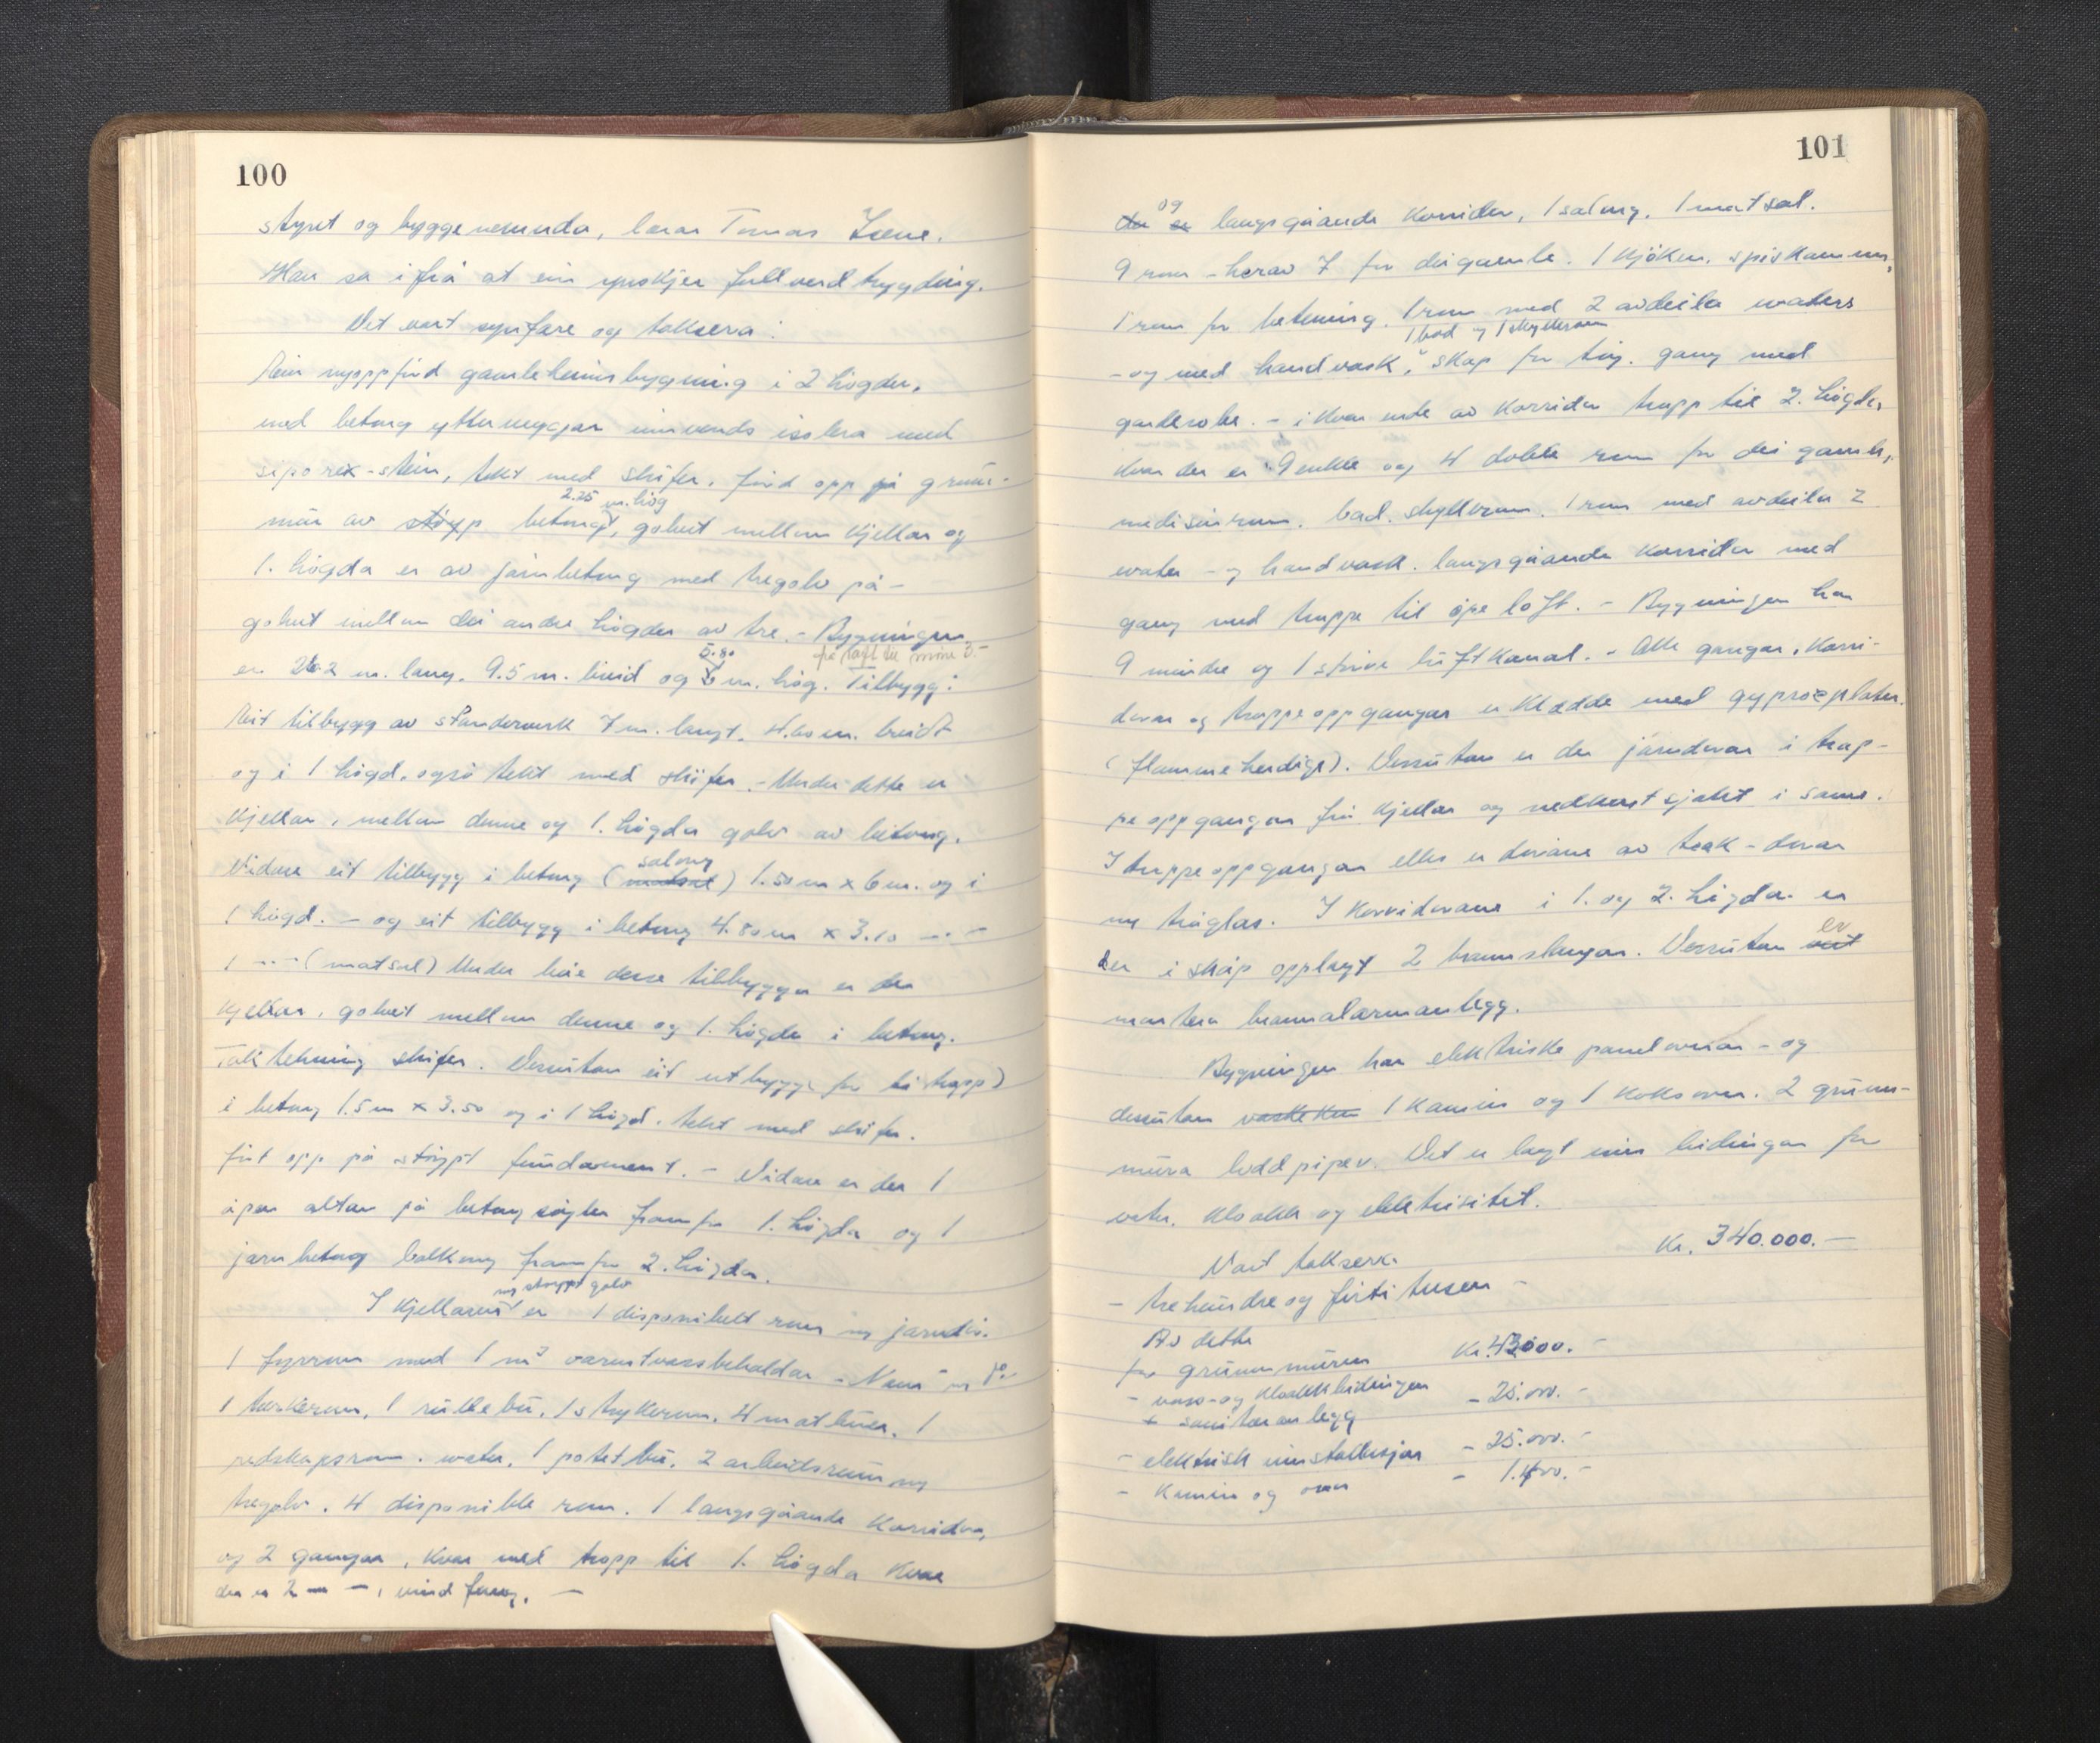 100
styret og byggenemnda, lærar Tomas
Han sa ifrå at ein ynskjer full verd trygding.
Det vart synfare og taksera:
Ein nyoppförd gamleheimsbygning i 2 högder,
med betong yttervegger innvends isolera med
siporex-stein, tekt med skifer, förd opp på grunn-
2.25 m. hög
mur av støyp betong, golvet mellom kjellar og
1. högda er av jarnbetong med tregolv på -
golvet mellom dei andre högder av tre. - Bygningen
5.80 frå loft til möne 3.-
er 26.2 m. lang. 9.5 m. breid og 6 m. hög. Tilbygg:
Eit tilbygg av standerverk 7 m. langt, 4.60 m. breidt
og i 1 högd, også tekt med skifer. - Under dette er
kjellar, mellom denne og 1. högda golv av betong.
salong
Vidare eit tilbygg i betong (matsal) 1.50 m x 6 m. og i
1 högd. - og eit tilbygg i betong 4.80 m x 3.10 - " -
1 - " - (matsal) Under desse tilbygga er der
kjellar, golvet mellom denne og 1. högda i betong.
Taktekning skifer. Dessutan eit utbygg for trapp)
i betong 1.5 m x 3.50 og i 1 högd. tekt med skifer.
fört opp på støypt fundament. - Vidare er der 1
open altan på betong søyler framfor 1. högda og 1
jarnbetong balkong framfor 2. högda.
m støypt golv
I kjellaren er 1 disponibelt rom m jarndör.
1 fyrrom med 1 m³ varmtvassbehaldar
1 tørkerom, 1 rullebu, 1 strykerom, 4 matbuer, 1
redskapsrom, water, 1 potetbu, 2 arbeidsrom m
tregolv, 4 disponible rom. 1 langsgåande korridor,
og 2 gangar, kvar med trapp til 1. högda kvar
der er 2 - " -, vindfang. -
101
og
der er langsgåande korridor, 1 salong, 1 matsal.
9 rom - herav 7 for dei gamle. 1 kjöken, spiskammer,
1 rom for betening. 1 rom med 2 avdeila waters
1 bad og 1 skyllerom
- og med handvask, skap for töy. gang med
garderobe. - i kvar ende av korridor trapp til 2. högda,
kvar der er 9 enkle og 4 doble rom for dei gamle,
medisinrom, bad, skyllerom, 1 rom med avdeila 2
water - og handvask. langsgåande korridor med
gang med trapp til ope loft. - Bygningen har
9 mindre og 1 större luftkanal. - Alle gangar, korri-
dorar og trappeoppgangar er kledde med gyprocplater.
(flammeherdige). Dessutan er der jarndorar i trap-
peoppgangar frå kjellar og nedkastsjakt i same.
I trappeoppgangar elles er dörane av teak - dorar
m tråglas. I korridorane i 1. og 2. högda er
er
der i skåp opplagt 2 brannslangar. Dessutan vert
montera brannalarmanlegg.
Bygningen har elektriske panelomnar - og
dessutan vaskekum 1 kamin og 1 koksomn. 2 grunn-
mura loddpiper. Det er lagt inn leidningar for
vatn, kloakk og elektrisitet.
Vart taksera Kr. 340.000.-
- trehundre og förti tusen -
Av dette
for grunnmuren Kr. 43000.-
- vass- og kloakkleidningen
+ sanitæranlegg - 25.000.-
- elektrisk innstallasjon - 25.000.-
- Kamin og omn -